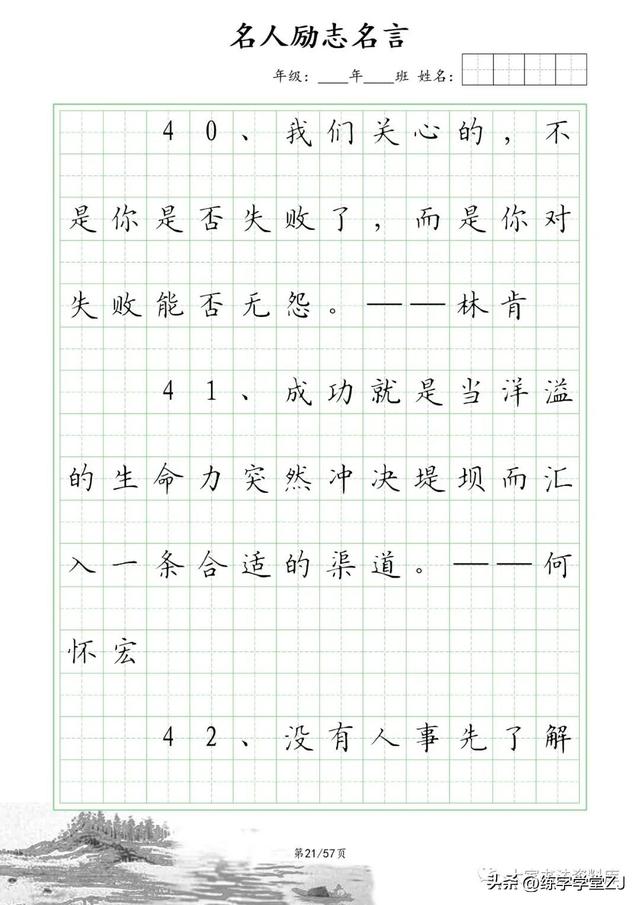 名人励志名言
年级：____年____班 姓名：
40、我们关心的，不
是你是否失败了，而是你对
失败能否无怨。——林肯
41、成功就是当洋溢
的生命力突然冲决堤坝而汇
入一条合适的渠道。——何
怀宏
42、没有人事先了解
第21/57页
头条@练字学堂ZJ